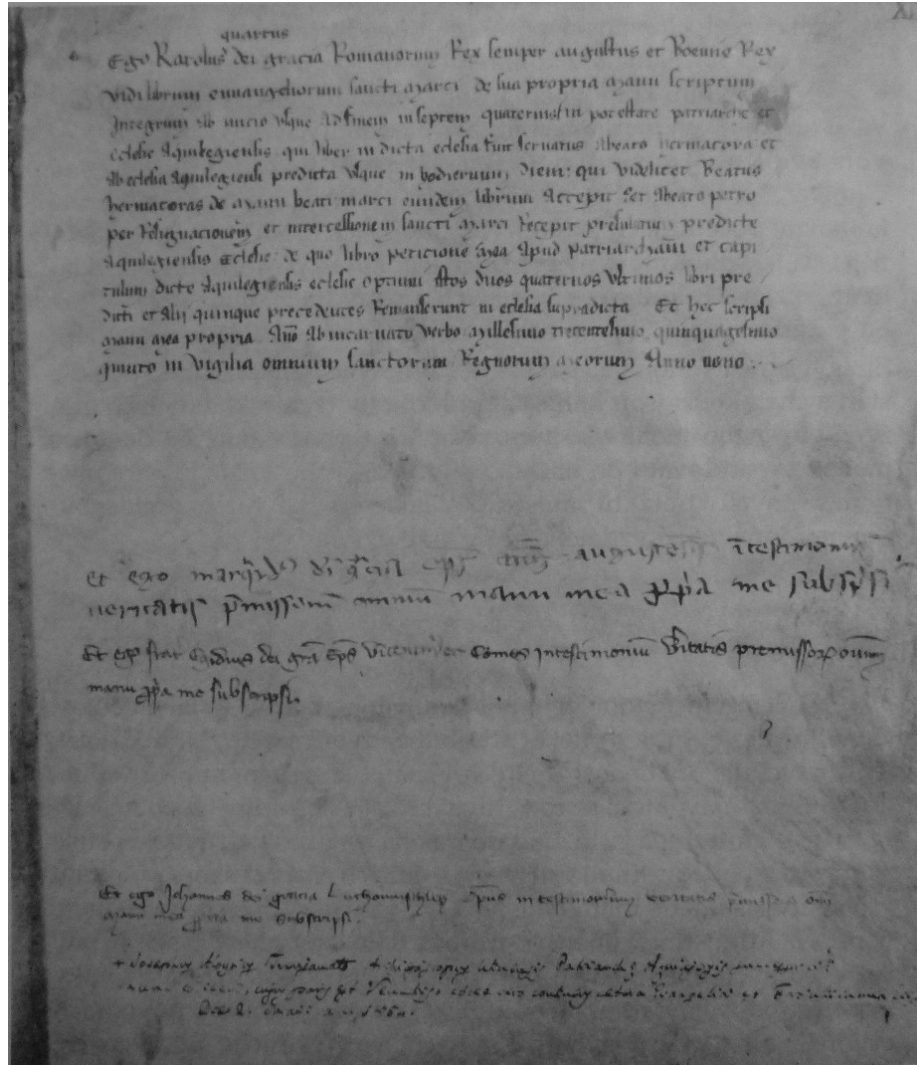 XI
quartus
Ego Karolus dei gracia Romanorum Rex semper augustus et Boemie Rex
vidi librum ewangeliorum sancti marci de sua propria manu scriptum
Integrum ab inicio usque ad finem in septem quaternis in potestate patriarche et
ecclesie Aquilegiensis qui liber in dicta ecclesia fuit servatus a beato hermacora et
ab ecclesia Aquilegiensi predicta usque in hodiernum diem: qui videlicet Beatus
hermacoras de manu beati marci eiusdem librum Accepit Et A beato petro
per Resignacionem et intercessionem sancti marci Recepit presulatum predicte
Aquilegiensis Ecclesie: de quo libro peticione mea Apud patriarcham et capi
tulum dicte Aquilegiensis ecclesie optinui istos duos quaternos Ultimos libri pre
dicti et Alii quinque precedentes Remanserunt in ecclesia supradicta Et hec scripsi
manu mea propria Anno Ab incarnato Verbo millesimo trecentesimo quinquagesimo
quinto in Vigilia omnium sanctorum Regnorum meorum Anno nono
et ego marq'rd' di gracia eps augusten' i testimonium
veritatis p'missorum omnium manu mea ppa me subscripsi
Et ego frat Egidius dei gra eps Vicentinus Comes in testimonium Veritatis premissorum omnium
manu ppa me subscripsi.
Et ego Johannes dei gracia Luthomuschlen eps in testimonium veritatis p'missorum om
manu mea ppria me subscripsi